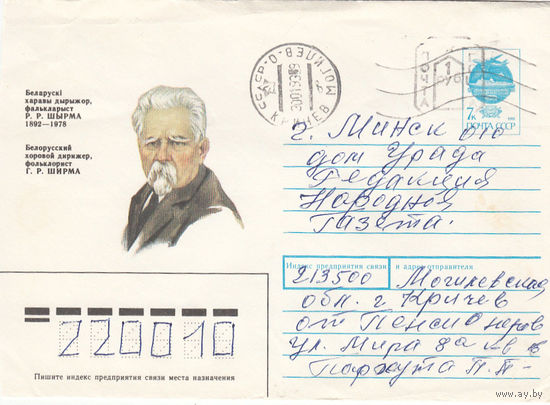 Беларускі
харавы дырыжор,
фалькларыст
Р. Р. ШЫРМА
1892—1978
Белорусский
хоровой дирижер,
фольклорист
Г. Р. ШИРМА
КРИЧЕВ
ПОЧТА
1
РУБ
7к
ПОЧТА СССР
г. Минск
дом Урада
Редакция
Народная
газета.
Индекс предприятия связи и адрес отправителя
213500 Могилевская
обл. г. Кричев
от Пенсионеров
ул. Мира
220010
Пишите индекс предприятия связи места назначения
www.ay.by